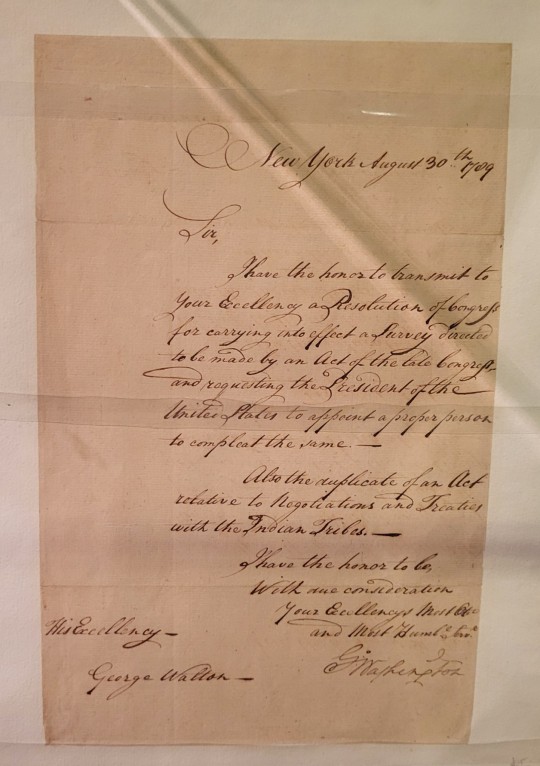 New York August 30th 1789
Sir,
I have the honor to transmit to
Your Excellency a Resolution of Congress
for carrying into effect a Survey directed
to be made by an Act of the late Congress,
and requesting the President of the
United States to appoint a proper person
to compleat the same. —
Also the duplicate of an Act
relative to Negotiations and Treaties
with the Indian Tribes. —
I have the honor to be,
With due consideration
Your Excellencys Most
and Most Humble
Go Washington
His Excellency —
George Walton —